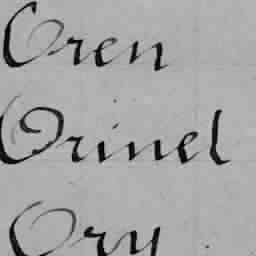 Oren
Orinel
Ory